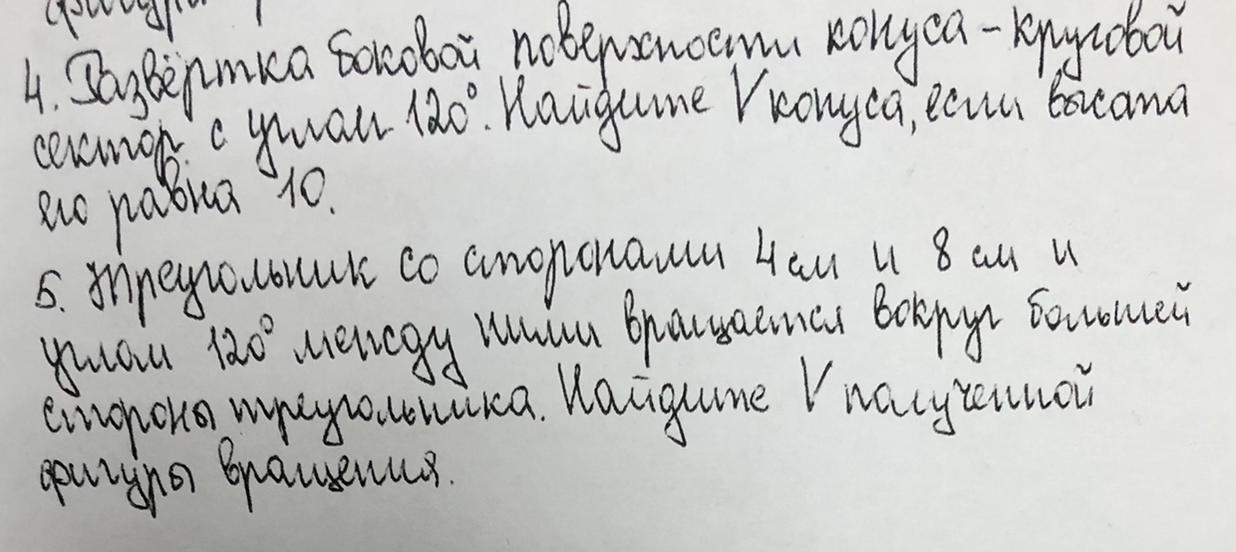 4. Развёртка боковой поверхности конуса - круговой
сектор с углом 120°. Найдите V конуса, если высота
его равна 10.
5. Треугольник со сторонами 4 см и 8 см и
углом 120° между ними вращается вокруг большей
стороны треугольника. Найдите V полученной
фигуры вращения.